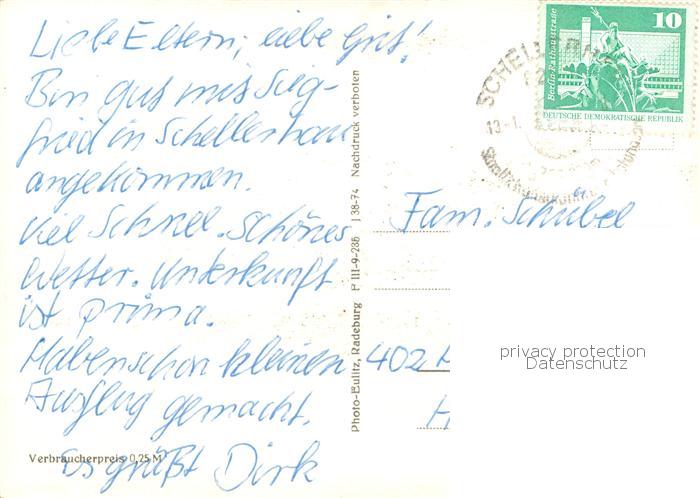 Liebe Eltern, liebe Grit!
Bin gut mit Sieg-
fried in Schellerhau
angekommen.
Viel Schnee. Schönes
Wetter. Unterkunft
ist prima.
Haben schon kleinen
Ausflug gemacht.
Es grüßt Dirk
Verbraucherpreis 0,25 M
Photo-Eulitz, Radeburg F III-9-236 J 38-74 Nachdruck verboten
10
Berlin-Rathausstraße
DEUTSCHE DEMOKRATISCHE REPUBLIK
SCHELLERHAU
Fam. Schubel
402 H
H
privacy protection
Datenschutz